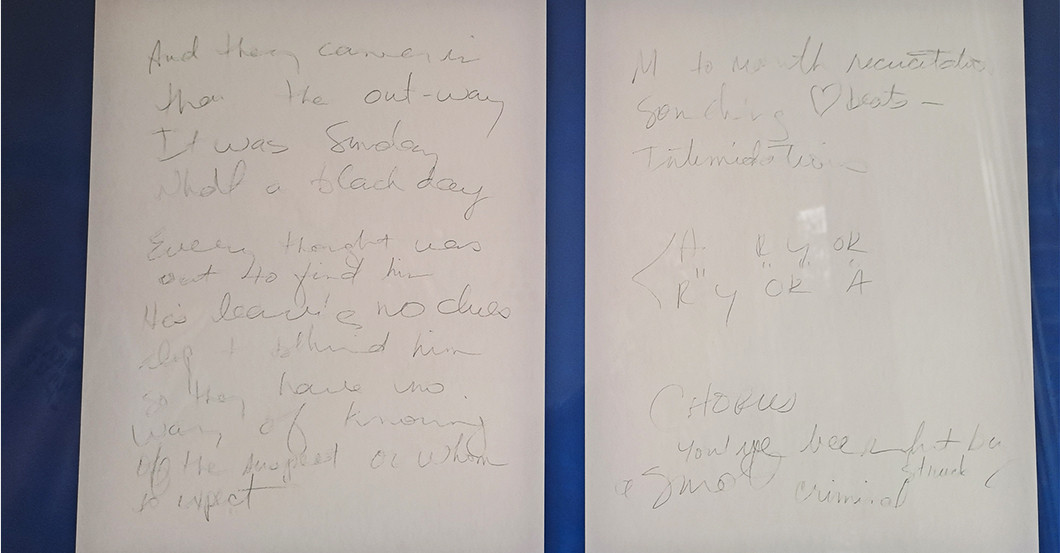 And they came in
the out-way
It was Sunday
What a black day
Every thought was
out to find him
He's leavi'g no clues
behind him
so they have no
way of knowing
of the suspect or whom
to expect
M to mouth
♡ beats -
Intimidation
A R Y OR
R Y OR A
CHORUS
You've been hit by
struck
a Smo
criminal